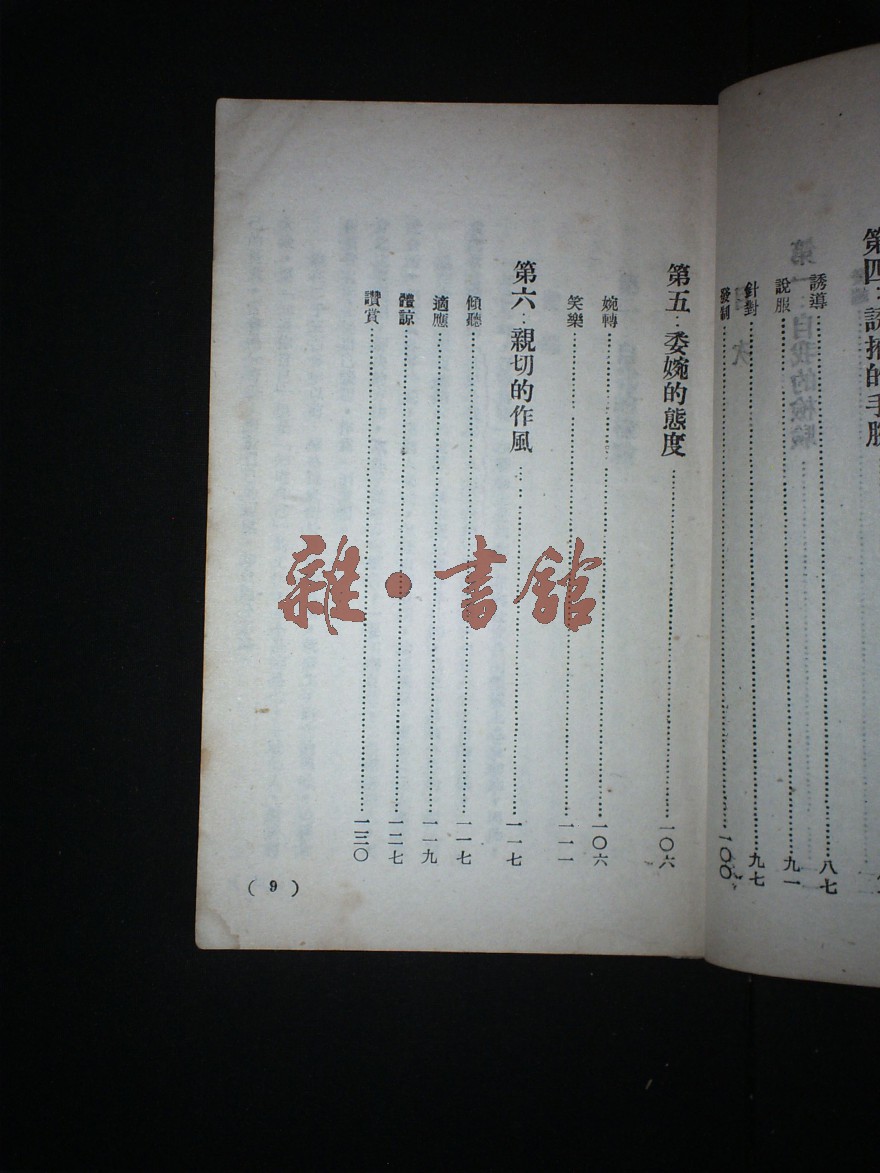 第四：誘掖的手腕
誘導……八七
說服……九一
針對……九七
發制……一〇〇
第五．委婉的態度……一〇六
婉轉……一〇六
笑樂……一一一
第六．親切的作風……一一七
傾聽……一一七
適應……一一九
體諒……一二七
讚賞……一三〇
( 9 )
雜•書館